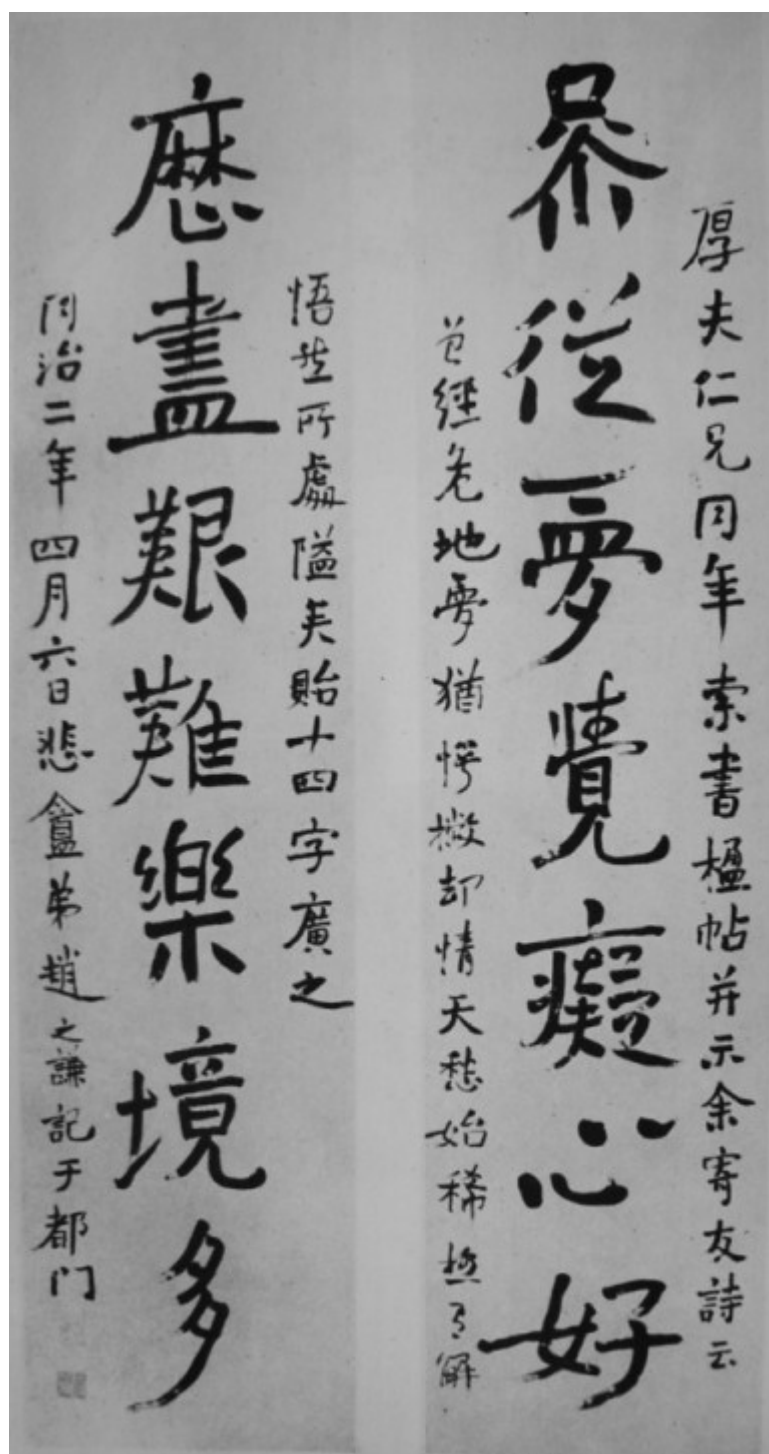 厚夫仁兄同年索書楹帖并示余寄友詩云
參從夢覺癡心好
曾經危地夢猶愕撇却情天愁始稀極有解
悟然所處隘矣貽十四字廣之
歷盡艱難樂境多
同治二年四月六日悲盦弟趙之謙記于都門